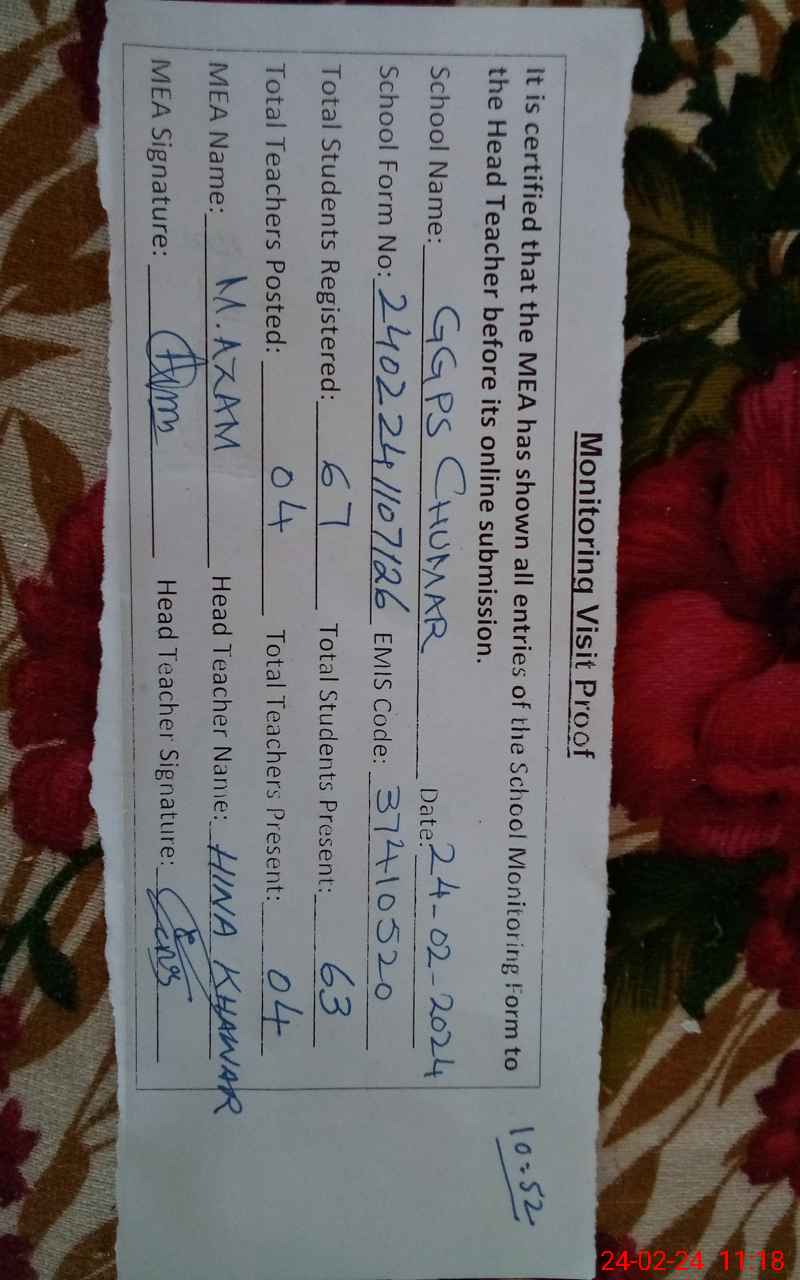 Monitoring Visit Proof
10:52
It is certified that the MEA has shown all entries of the School Monitoring Form to
the Head Teacher before its online submission.
School Name: GGPS CHUMAR Date: 24-02-2024
School Form No: 2402241107126 EMIS Code: 37410520
Total Students Registered: 67 Total Students Present: 63
Total Teachers Posted: 04 Total Teachers Present: 04
MEA Name: M. AZAM Head Teacher Name: HINA KHAWAR
MEA Signature: Head Teacher Signature:
24-02-24 11:18